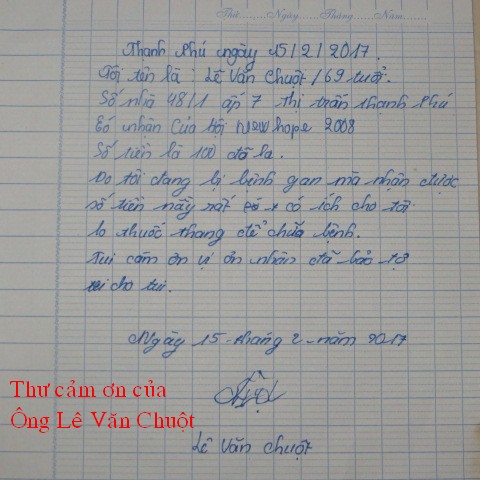 Thứ........Ngày..........Tháng..........Năm..........
Thạnh Phú ngày 15/2/2017.
Tôi tên là : Lê Văn Chuột / 69 tuổi.
Số nhà 48/1 ấp 7 thị trấn thạnh Phú
Có nhận Của Hội New hope 2008
Số tiền là 100 đô la.
Do tôi đang bị bệnh gan mà nhận được
số tiền nầy rất có ích cho tôi
lo thuốc thang để chữa bệnh.
Tui cám ơn vị ân nhân đã bảo trợ
cho tui.
Ngày 15 tháng 2 năm 2017
Lê Văn Chuột
Thư cảm ơn của
Ông Lê Văn Chuột